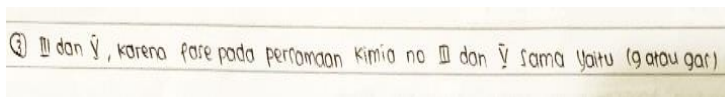 ③ III dan V, karena fase pada persamaan kimia no III dan V sama yaitu (g atau gas)